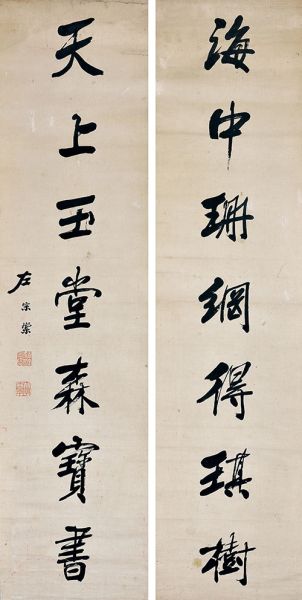 海中珊網得琪樹
天上玉堂森寶書
左宗棠